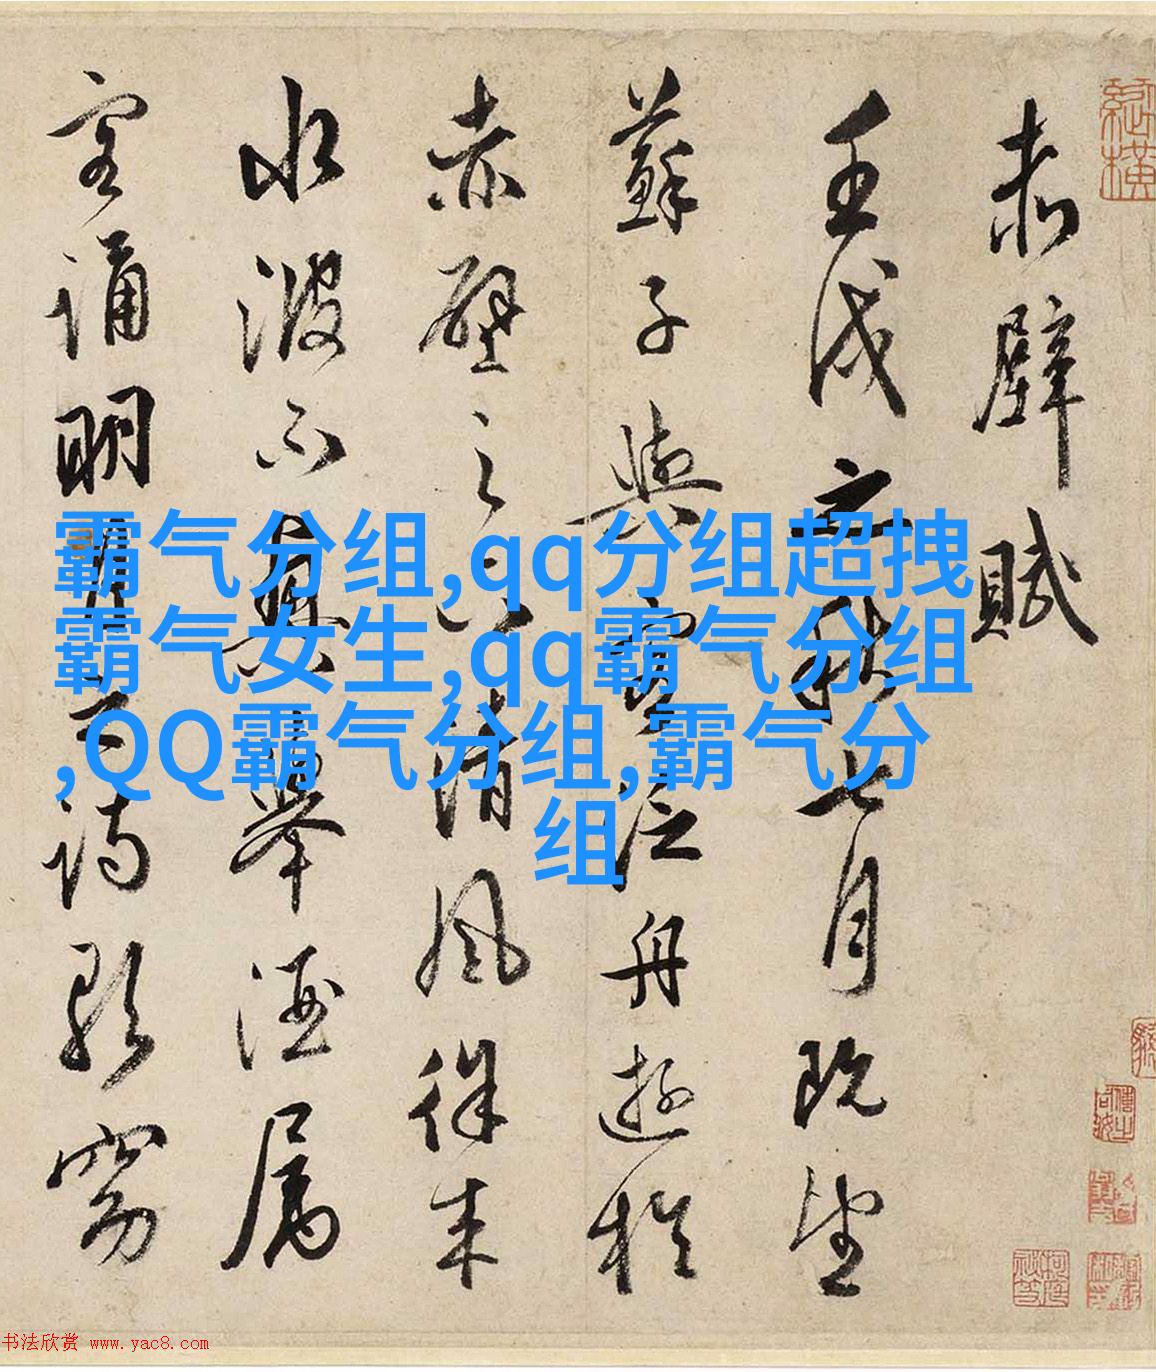 赤壁賦
壬戌之秋七月既望
蘇子與客泛舟遊於
赤壁之下清風徐來
水波不興舉酒屬
客誦明月之詩歌窈
霸气分组,qq分组超拽
霸气女生,qq霸气分组
,QQ霸气分组,霸气分
组
书法欣赏 www.yac8.com